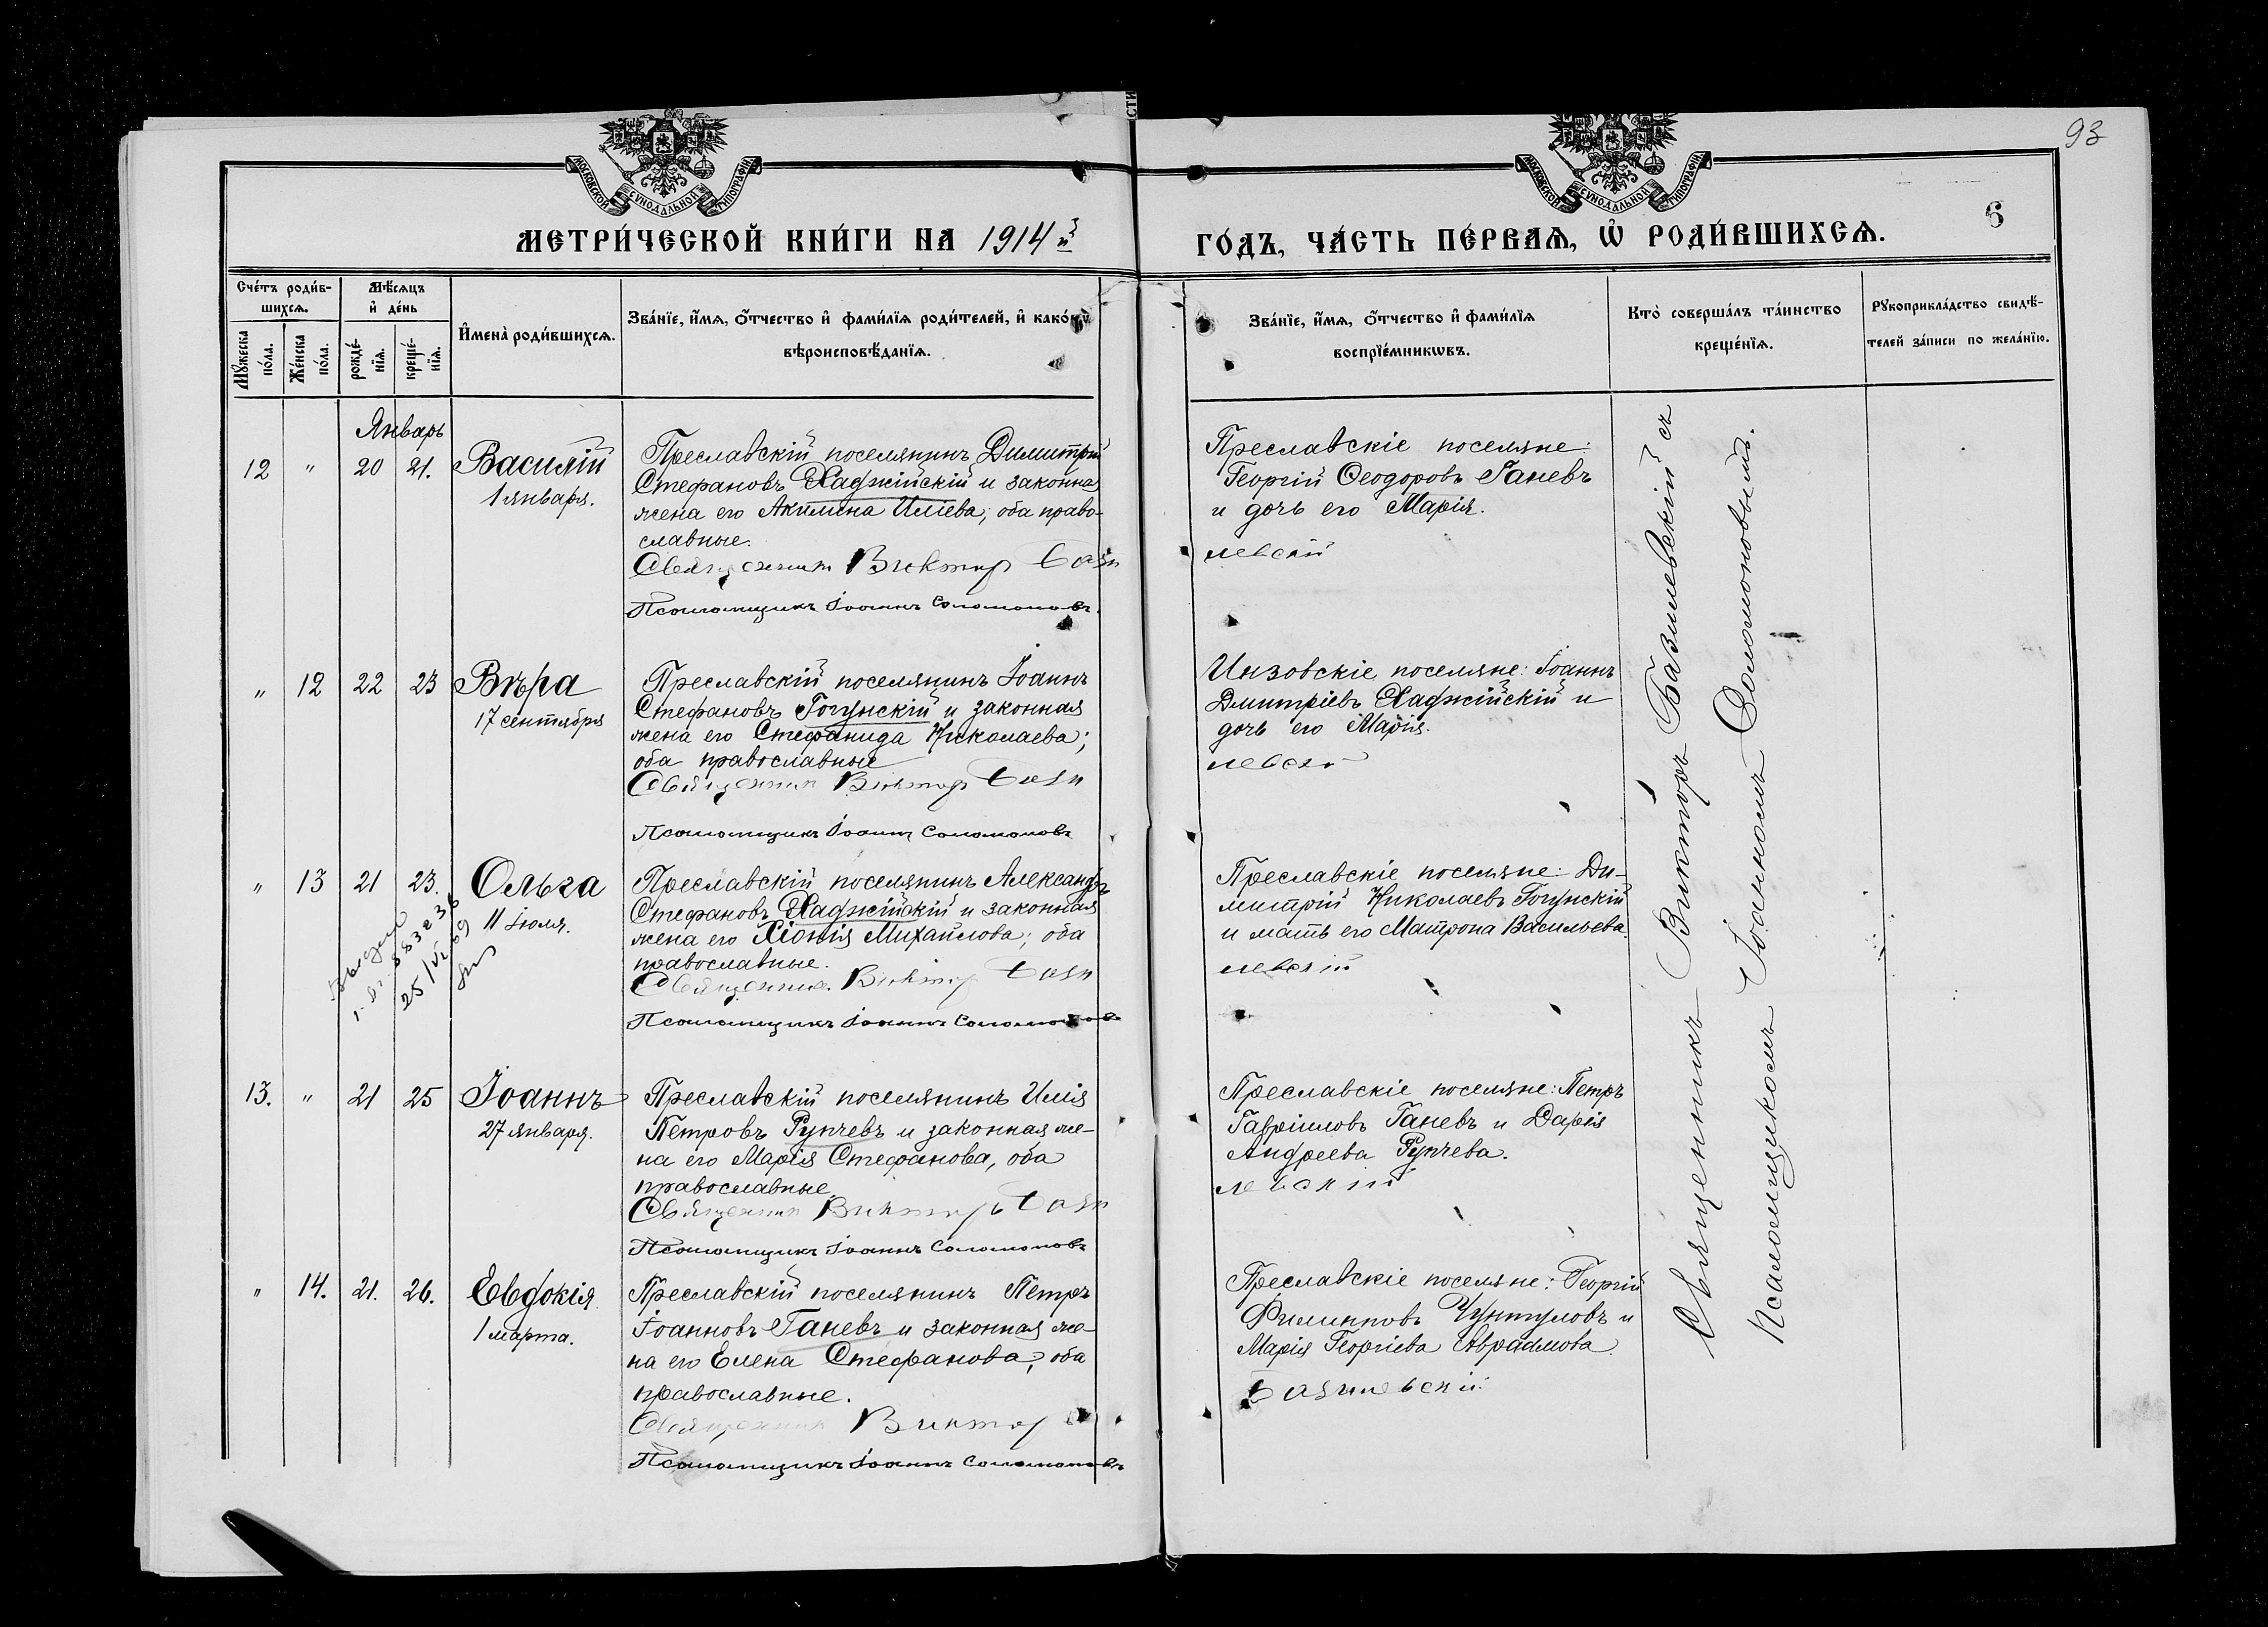 93
МОСКОВСКОЙ СУНОДАЛЬНОЙ ТИПОГРАФІИ
МОСКОВСКОЙ СУНОДАЛЬНОЙ ТИПОГРАФІИ
МЕТРИ́ЧЕСКОЙ КНИ́ГИ НА 1914й
ГО́ДЪ, ЧА́СТЬ ПЕ́РВАѦ, Ѡ҆ РОДИ́ВШИХСѦ.
6
Сче́тъ роди́в-
шихсѧ.
Мꙋ́жеска
по́ла.
Же́нска
по́ла.
Мѣ́сѧцъ
и҆ де́нь
рожде́-
нїѧ.
креще́-
нїѧ.
И҆мена̀ роди́вшихсѧ.
Зва́нїе, и҆́мѧ, ѻ҆́тчество и҆ фами́лїѧ роди́телей, и҆ како́гѡ
вѣроисповѣ́данїѧ.
Зва́нїе, и҆́мѧ, ѻ҆́тчество и҆ фами́лїѧ
воспрїе́мникѡвъ.
Кто̀ соверша́лъ та́инство
креще́нїѧ.
Рꙋкоприкла́дство свидѣ́-
телей за́писи по жела́нїю.
Январь
12 " 20 21. Василій
1 января.
Преславскій поселянинъ Димитрій
Стефановъ Хаджійскій и законная
жена его Акилина Иліева; оба право-
славные.
Священникъ Викторъ Бази
Псаломщикъ Іоаннъ Соломоновъ.
Преславскіе поселяне:
Георгій Ѳеодоровъ Ганевъ
и дочь его Марія.
левскій
" 12 22 23 Вѣра
17 сентября
Преславскій поселянинъ Іоаннъ
Стефановъ Гогунскій и законная
жена его Стефанида Николаева;
оба православные
Священникъ Викторъ Бази
Псаломщикъ Іоаннъ Соломоновъ
Инзовскіе поселяне: Іоаннъ
Дмитріевъ Хаджійскій и
дочь его Марія.
левскій
" 13 21 23. Ольга
11 Іюля.
25/VI 69
Преславскій поселянинъ Александръ
Стефановъ Хаджійскій и законная
жена его Хіонія Михайлова; оба
православные.
Священникъ Викторъ Бази
Псаломщикъ Іоаннъ Соломоновъ
Преславскіе поселяне: Ди-
митрій Николаевъ Гогунскій
и мать его Матрона Васильева.
левскій
13. " 21 25 Іоаннъ
27 января.
Преславскій поселянинъ Илія
Петровъ Рупчевъ и законная же-
на его Марія Стефанова, оба
православные.
Священникъ Викторъ Бази
Псаломщикъ Іоаннъ Соломоновъ
Преславскіе поселяне: Петръ
Гавріиловъ Ганевъ и Дарія
Андреева Рупчева.
левскій
" 14. 21. 26. Евдокія
1 марта.
Преславскій поселянинъ Петръ
Іоанновъ Ганевъ и законная же-
на его Елена Стефанова, оба
православные.
Священникъ Викторъ
Псаломщикъ Іоаннъ Соломоновъ
Преславскіе поселяне: Георгій
Филипповъ Чунтуловъ и
Марія Георгіева Авраамова.
Базилевскій
Священникъ Викторъ Базилевскій съ
Псаломщикомъ Іоанномъ Соломоновымъ.